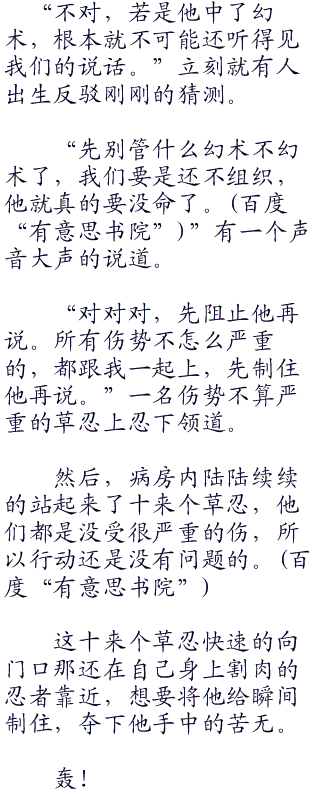 “不对，若是他中了幻
术，根本就不可能还听得见
我们的说话。”立刻就有人
出生反驳刚刚的猜测。
“先别管什么幻术不幻
术了，我们要是还不组织，
他就真的要没命了。(百度
“有意思书院”)”有一个声
音大声的说道。
“对对对，先阻止他再
说。所有伤势不怎么严重
的，都跟我一起上，先制住
他再说。”一名伤势不算严
重的草忍上忍下领道。
然后，病房内陆陆续续
的站起来了十来个草忍，他
们都是没受很严重的伤，所
以行动还是没有问题的。(百
度“有意思书院”)
这十来个草忍快速的向
门口那还在自己身上割肉的
忍者靠近，想要将他给瞬间
制住，夺下他手中的苦无。
轰！